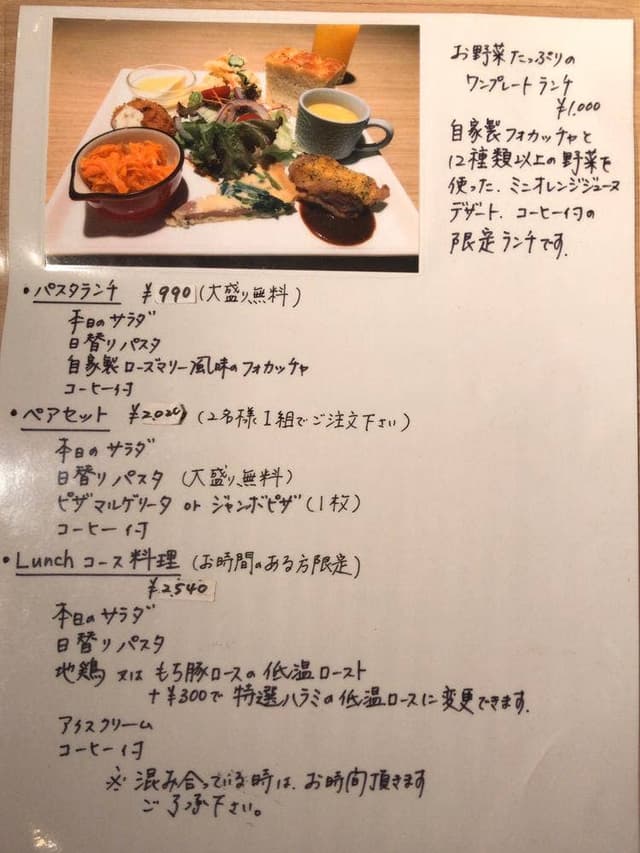 お野菜たっぷりの
ワンプレートランチ
¥1,000
自家製フォカッチャと
12種類以上の野菜を
使った、ミニオレンジジュース
デザート、コーヒー付の
限定ランチです。
・パスタランチ ¥990(大盛り無料)
本日のサラダ
日替りパスタ
自家製ローズマリー風味のフォカッチャ
コーヒー付
・ペアセット ¥2,020(2名様1組でご注文下さい)
本日のサラダ
日替りパスタ(大盛り無料)
ピザマルゲリータ or ジャンボピザ(1枚)
コーヒー付
・Lunchコース料理(お時間のある方限定)
¥2,540
本日のサラダ
日替りパスタ
地鶏 又は もち豚ロースの低温ロースト
+¥300で 特選ハラミの低温ロースに変更できます。
アイスクリーム
コーヒー付
※混み合っている時は、お時間頂きます
ご了承下さい。